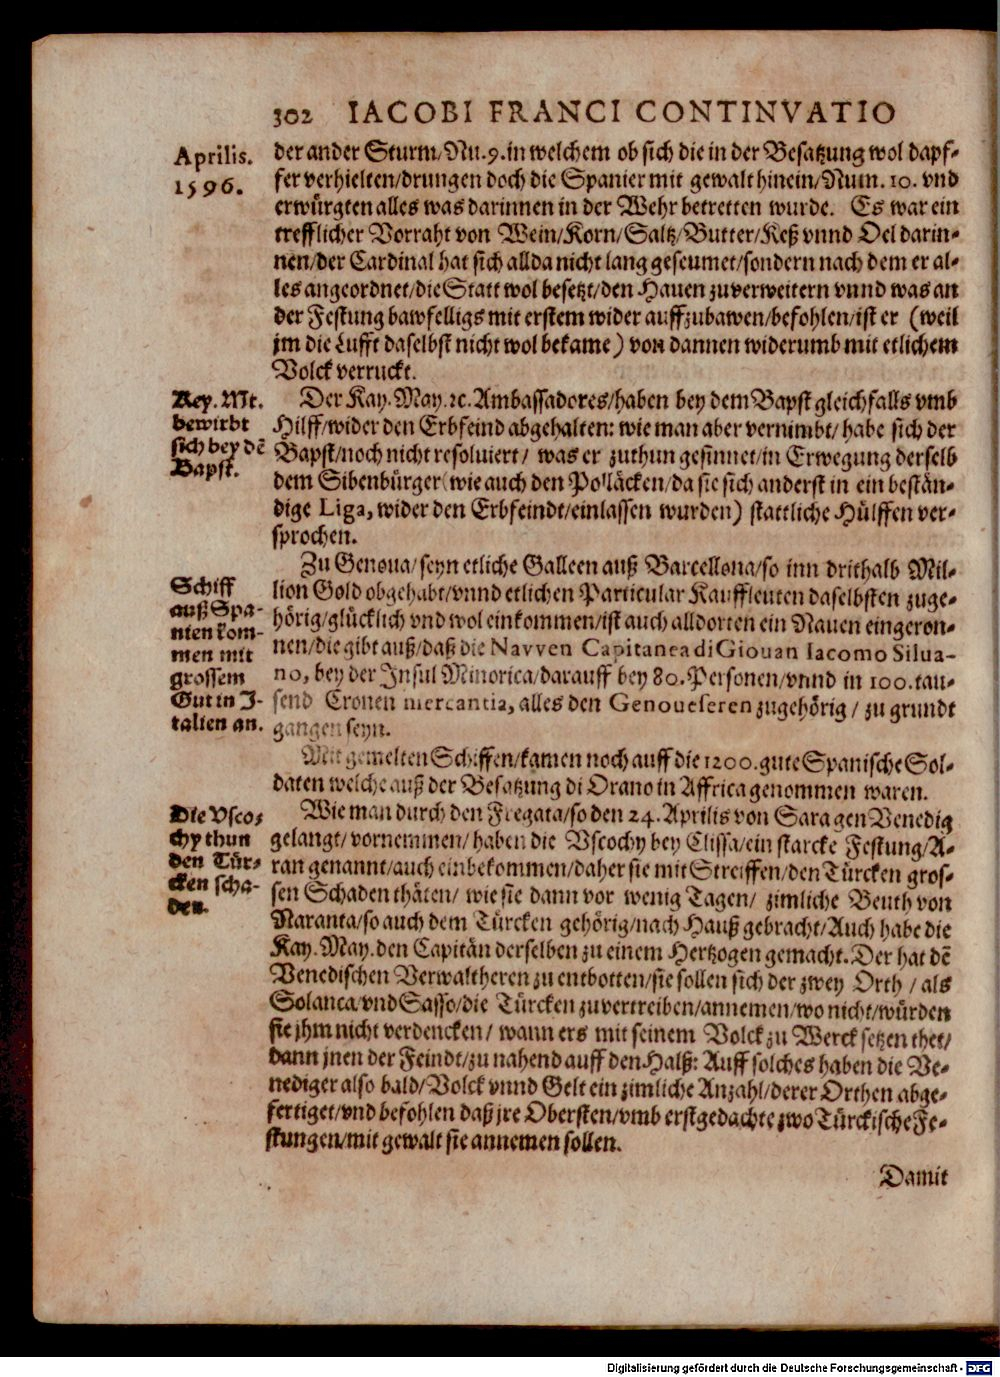 302 IACOBI FRANCI CONTINVATIO
Aprilis.
1596.
der ander Sturm/Nu.9.in welchem ob sich die in der Besatzung wol dapf-
fer verhielten/drungen doch die Spanier mit gewalt hinein/Num. 10. vnd
erwürgten alles was darinnen in der Wehr betretten wurde. Es war ein
trefflicher Vorraht von Wein/Korn/Saltz/Butter/Keß vnnd Oel darin-
nen/der Cardinal hat sich allda nicht lang geseumet/sondern nach dem er al-
les angeordnet/die Statt wol besetzt/den Hauen zuverweitern vnnd was an
der Festung bawfelligs mit erstem wider auffzubawen/befohlen/ist er (weil
jm die Lufft daselbst nicht wol bekame) von dannen widerumb mit etlichem
Volck verruckt.
Key. Mt.
bewirbt
sich bey dē
Bapst.
Der Kay. May. ꝛc. Ambassadores/haben bey dem Bapst gleichfalls vmb
Hilff/wider den Erbfeind abgehalten: wie man aber vernimbt/habe sich der
Bapst/noch nicht resoluiert/ was er zuthun gesinnet/in Erwegung derselb
dem Sibenbürger (wie auch den Poläcken/da sie sich anderst in ein bestän-
dige Liga, wider den Erbfeindt/einlassen wurden) stattliche Hülffen ver-
sprochen.
Schiff
auß Spa-
nien kom-
men mit
grossem
Gut in J-
talien an.
Zu Genoua/seyn etliche Galleen auß Barcellona/so inn drithalb Mil-
lion Gold obgehabt/vnnd etlichen Particular Kauffleuten daselbsten zuge-
hörig/glücklich vnd wol einkommen/ist auch alldorten ein Nauen eingeron-
nen/die gibt auß/daß die Navven Capitanea di Giouan Iacomo Silua-
no, bey der Insul Minorica/darauff bey 80. Personen/vnnd in 100. tau-
send Cronen mercantia, alles den Genoueseren zugehörig / zu grundt
gangen seyn.
Mit gemelten Schiffen/kamen noch auff die 1200. gute Spanische Sol-
daten welche auß der Besatzung di Orano in Affrica genommen waren.
Die Vsco-
chy thun
den Tür-
cken scha-
den.
Wie man durch den Fregata/so den 24. Aprilis von Sara gen Venedig
gelangt/vornemmen/haben die Vscochy bey Clissa/ein starcke Festung/A-
ran genannt/auch einbekommen/daher sie mit Streiffen/den Türcken gros-
sen Schaden thäten/ wie sie dann vor wenig Tagen/ zimliche Beuth von
Naranta/so auch dem Türcken gehörig/nach Hauß gebracht/Auch habe die
Kay. May. den Capitän derselben zu einem Hertzogen gemacht. Der hat dē
Venedischen Verwaltheren zu entbotten/sie sollen sich der zwey Orth / als
Solanca/vnd Sasso/die Türcken zuvertreiben/annemen/wo nicht/würden
sie jhm nicht verdencken/ wann ers mit seinem Volck zu Werck setzen thet/
dann jnen der Feindt/zu nahend auff den Halß: Auff solches haben die Ve-
nediger also bald/Volck vnnd Gelt ein zimliche Anzahl/derer Orthen abge-
fertiget/vnd befohlen daß jre Obersten/vmb erstgedachte zwo Türckische Fe-
stungen/mit gewalt sie annemen sollen.
Damit
Digitalisierung gefördert durch die Deutsche Forschungsgemeinschaft - DFG